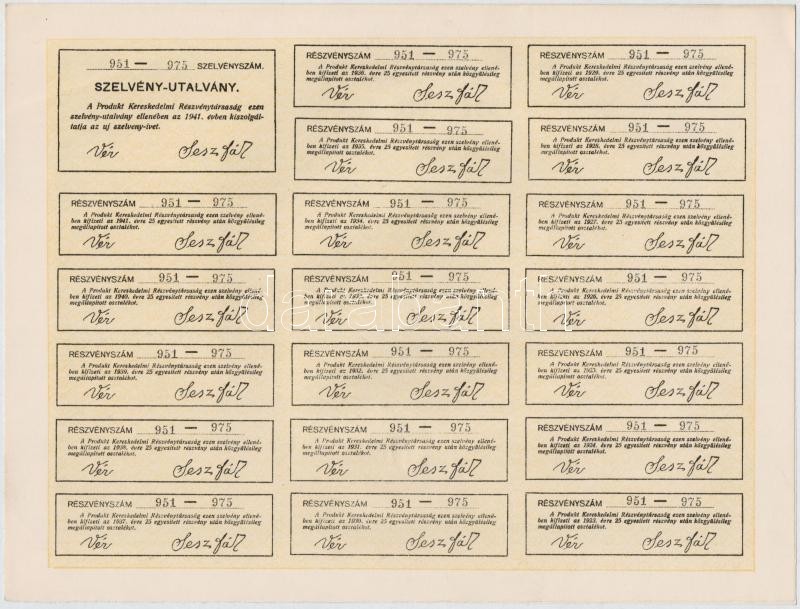 951 — 975 SZELVÉNYSZÁM.
SZELVÉNY-UTALVÁNY.
A Produkt Kereskedelmi Részvénytársaság ezen
szelvény-utalvány ellenében az 1941. évben kiszolgál-
tatja az uj szelvény-ivet.
RÉSZVÉNYSZÁM 951 — 975
A Produkt Kereskedelmi Részvénytársaság ezen szelvény ellené-
ben kifizeti az 1941. évre 25 egyesitett részvény után közgyülésileg
megállapitott osztalékot.
RÉSZVÉNYSZÁM 951 — 975
A Produkt Kereskedelmi Részvénytársaság ezen szelvény ellené-
ben kifizeti az 1940. évre 25 egyesitett részvény után közgyülésileg
megállapitott osztalékot.
RÉSZVÉNYSZÁM 951 — 975
A Produkt Kereskedelmi Részvénytársaság ezen szelvény ellené-
ben kifizeti az 1939. évre 25 egyesitett részvény után közgyülésileg
megállapitott osztalékot.
RÉSZVÉNYSZÁM 951 — 975
A Produkt Kereskedelmi Részvénytársaság ezen szelvény ellené-
ben kifizeti az 1938. évre 25 egyesitett részvény után közgyülésileg
megállapitott osztalékot.
RÉSZVÉNYSZÁM 951 — 975
A Produkt Kereskedelmi Részvénytársaság ezen szelvény ellené-
ben kifizeti az 1937. évre 25 egyesitett részvény után közgyülésileg
megállapitott osztalékot.
RÉSZVÉNYSZÁM 951 — 975
A Produkt Kereskedelmi Részvénytársaság ezen szelvény ellené-
ben kifizeti az 1936. évre 25 egyesitett részvény után közgyülésileg
megállapitott osztalékot.
RÉSZVÉNYSZÁM 951 — 975
A Produkt Kereskedelmi Részvénytársaság ezen szelvény ellené-
ben kifizeti az 1935. évre 25 egyesitett részvény után közgyülésileg
megállapitott osztalékot.
RÉSZVÉNYSZÁM 951 — 975
A Produkt Kereskedelmi Részvénytársaság ezen szelvény ellené-
ben kifizeti az 1934. évre 25 egyesitett részvény után közgyülésileg
megállapitott osztalékot.
RÉSZVÉNYSZÁM 951 — 975
A Produkt Kereskedelmi Részvénytársaság ezen szelvény ellené-
ben kifizeti az 1933. évre 25 egyesitett részvény után közgyülésileg
megállapitott osztalékot.
RÉSZVÉNYSZÁM 951 — 975
A Produkt Kereskedelmi Részvénytársaság ezen szelvény ellené-
ben kifizeti az 1932. évre 25 egyesitett részvény után közgyülésileg
megállapitott osztalékot.
RÉSZVÉNYSZÁM 951 — 975
A Produkt Kereskedelmi Részvénytársaság ezen szelvény ellené-
ben kifizeti az 1931. évre 25 egyesitett részvény után közgyülésileg
megállapitott osztalékot.
RÉSZVÉNYSZÁM 951 — 975
A Produkt Kereskedelmi Részvénytársaság ezen szelvény ellené-
ben kifizeti az 1930. évre 25 egyesitett részvény után közgyülésileg
megállapitott osztalékot.
RÉSZVÉNYSZÁM 951 — 975
A Produkt Kereskedelmi Részvénytársaság ezen szelvény ellené-
ben kifizeti az 1929. évre 25 egyesitett részvény után közgyülésileg
megállapitott osztalékot.
RÉSZVÉNYSZÁM 951 — 975
A Produkt Kereskedelmi Részvénytársaság ezen szelvény ellené-
ben kifizeti az 1928. évre 25 egyesitett részvény után közgyülésileg
megállapitott osztalékot.
RÉSZVÉNYSZÁM 951 — 975
A Produkt Kereskedelmi Részvénytársaság ezen szelvény ellené-
ben kifizeti az 1927. évre 25 egyesitett részvény után közgyülésileg
megállapitott osztalékot.
RÉSZVÉNYSZÁM 951 — 975
A Produkt Kereskedelmi Részvénytársaság ezen szelvény ellené-
ben kifizeti az 1926. évre 25 egyesitett részvény után közgyülésileg
megállapitott osztalékot.
RÉSZVÉNYSZÁM 951 — 975
A Produkt Kereskedelmi Részvénytársaság ezen szelvény ellené-
ben kifizeti az 1925. évre 25 egyesitett részvény után közgyülésileg
megállapitott osztalékot.
RÉSZVÉNYSZÁM 951 — 975
A Produkt Kereskedelmi Részvénytársaság ezen szelvény ellené-
ben kifizeti az 1924. évre 25 egyesitett részvény után közgyülésileg
megállapitott osztalékot.
RÉSZVÉNYSZÁM 951 — 975
A Produkt Kereskedelmi Részvénytársaság ezen szelvény ellené-
ben kifizeti az 1923. évre 25 egyesitett részvény után közgyülésileg
megállapitott osztalékot.